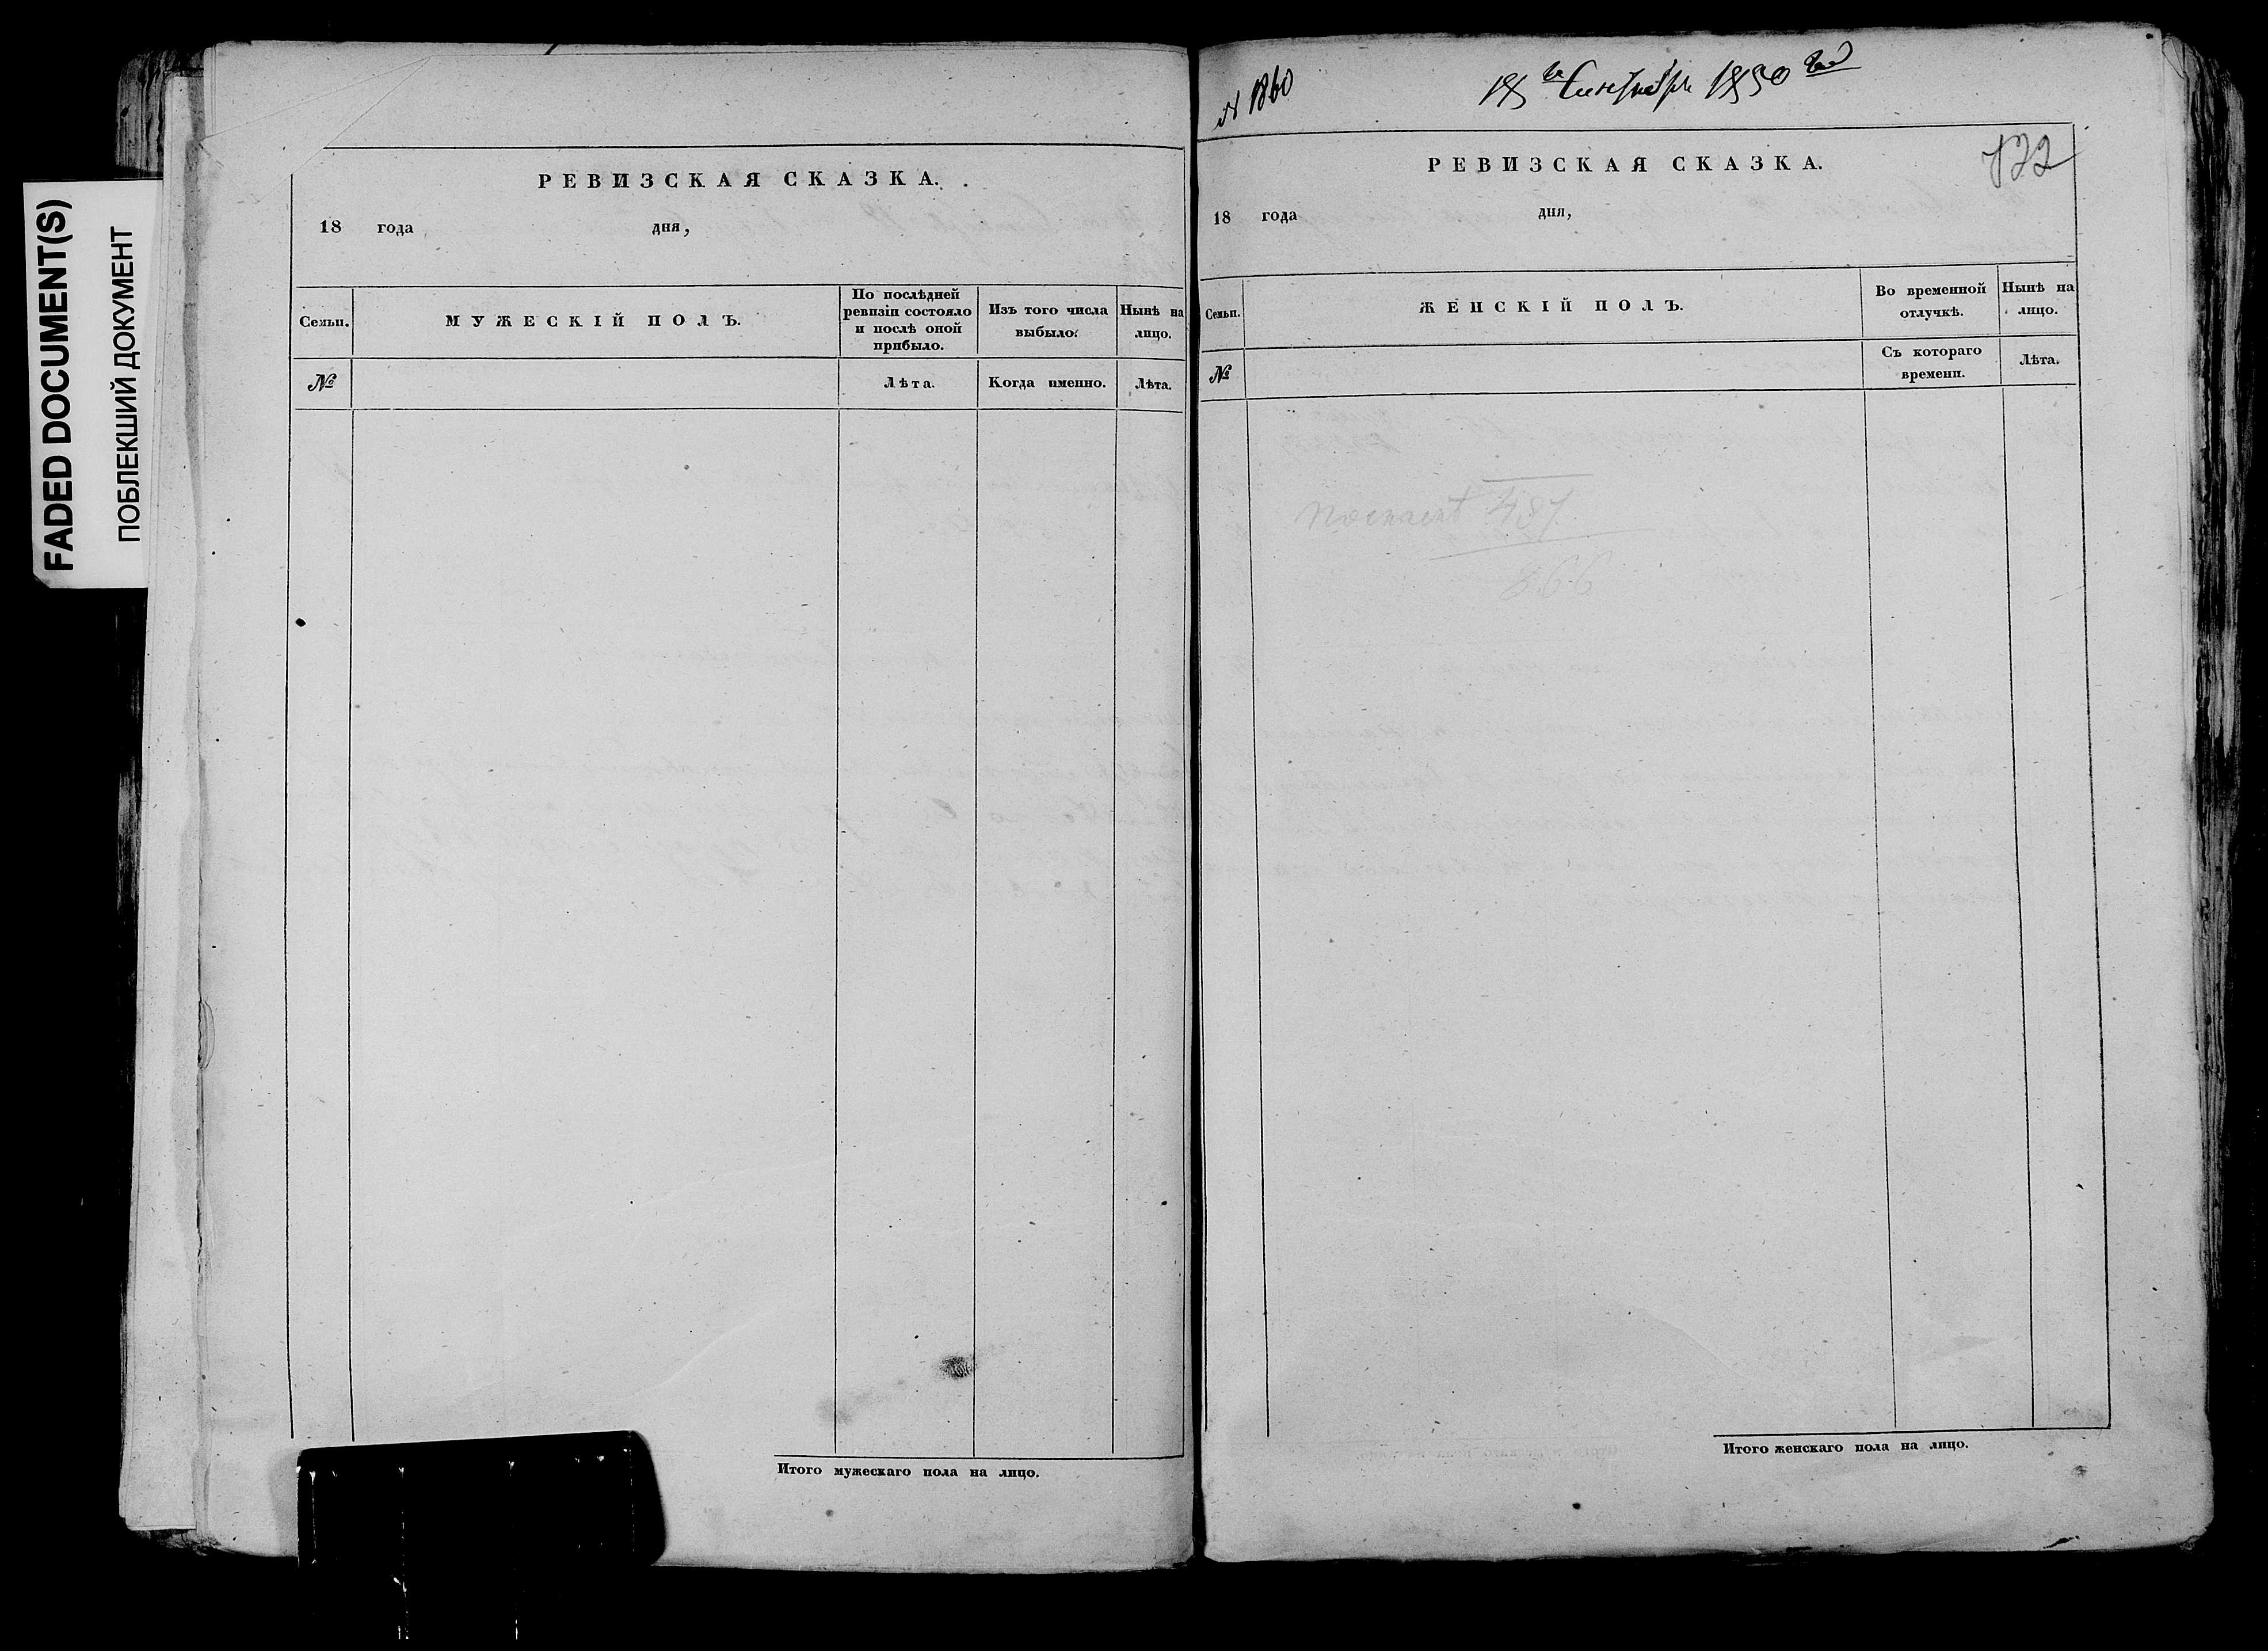 FADED DOCUMENT(S)
ПОБЛЕКШИЙ ДОКУМЕНТ
РЕВИЗСКАЯ СКАЗКА.
18 года дня,
Семьи.
МУЖЕСКІЙ ПОЛЪ.
По послѣдней
ревизіи состояло
и послѣ оной
прибыло.
Изъ того числа
выбыло.
Нынѣ на
лицо.
№
Лѣта.
Когда именно.
Лѣта.
Итого мужескаго пола на лицо.
№ 1860
18 Сентября 1850 год
132
РЕВИЗСКАЯ СКАЗКА.
18 года дня,
Семьи.
ЖЕНСКІЙ ПОЛЪ.
Во временной
отлучкѣ.
Нынѣ на
лицо.
№
Съ котораго
времени.
Лѣта.
866
Итого женскаго пола на лицо.